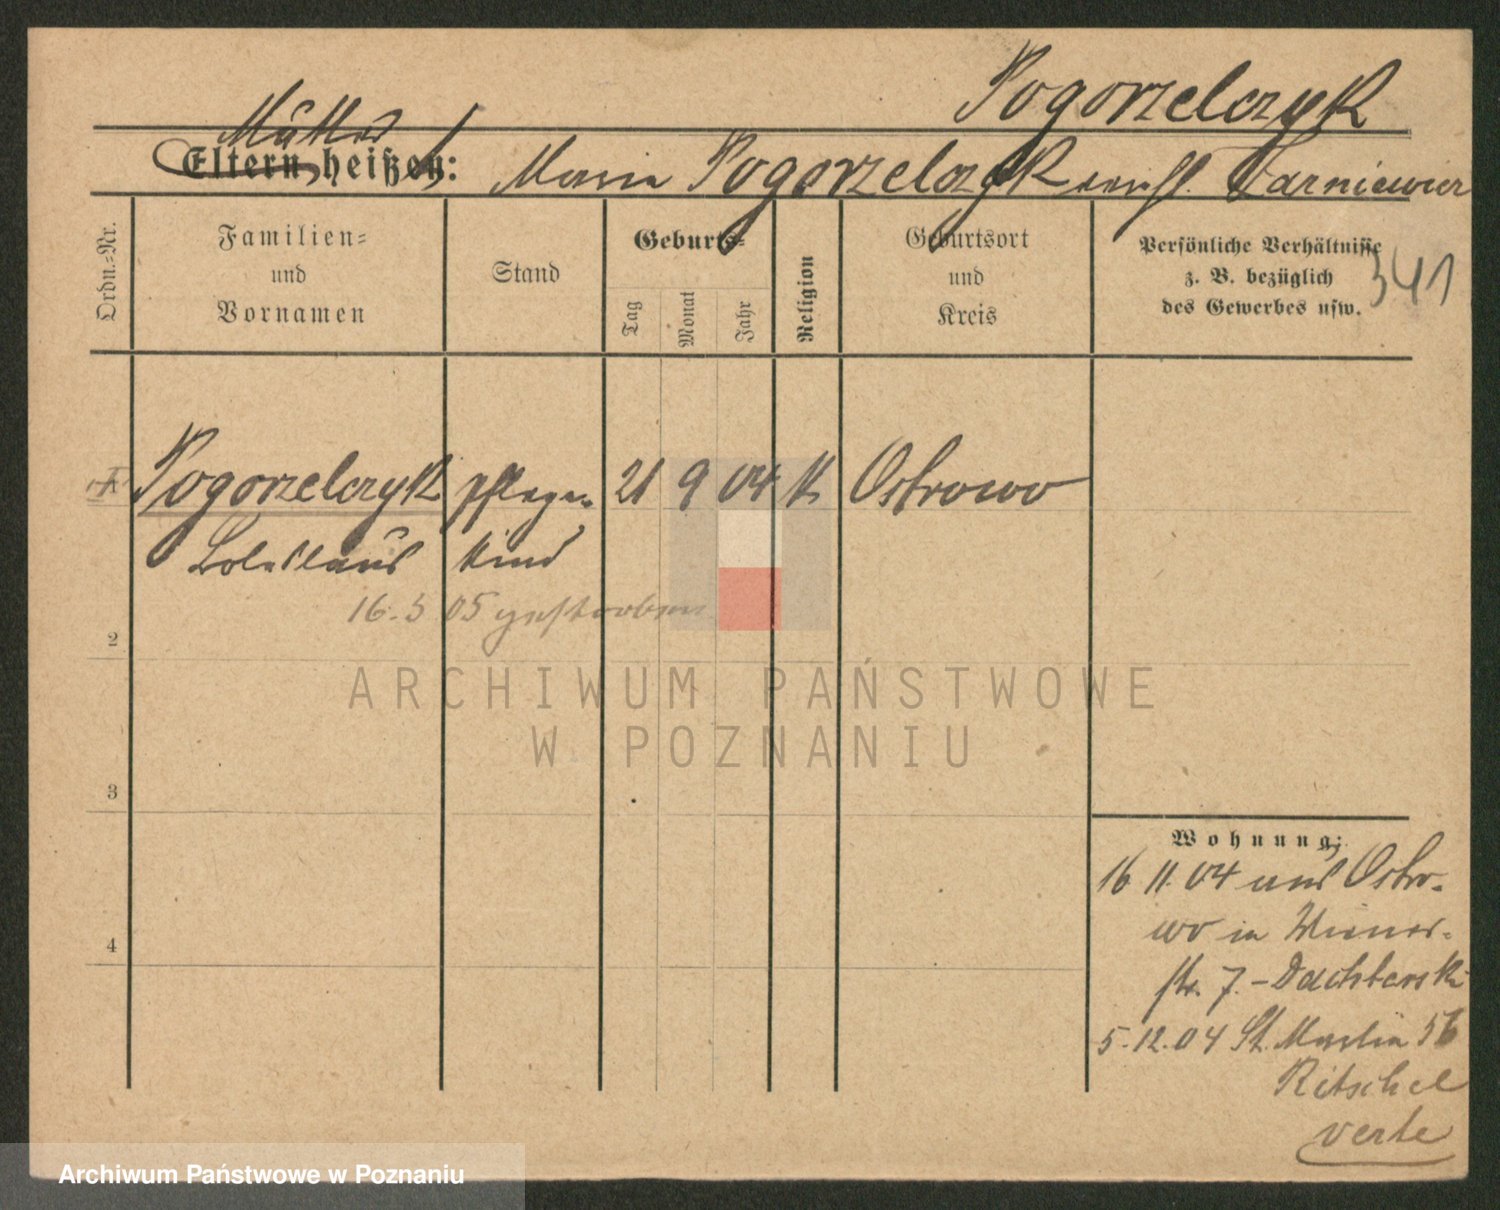 Pogorzelczyk
Mutter
Eltern heißen: Maria Pogorzelczyk verehl. Karniewicz
Ordn.-Nr.
Familien-
und
Vornamen
Stand
Geburts-
Tag
Monat
Jahr
Religion
Geburtsort
und
Kreis
Persönliche Verhältnisse
z. B. bezüglich
des Gewerbes usw.
341
Pogorzelczyk Pflege- 21 9 04 K Ostrowo
Boleslaus kind
16.5 05 gestorben
2
3
4
Wohnung:
16 11.04 aus Ostro-
wo in Wiener-
str. 7. - Dachterski
5.12.04 St. Martin 56
Ritschel
verte
ARCHIWUM PAŃSTWOWE
W POZNANIU
Archiwum Państwowe w Poznaniu